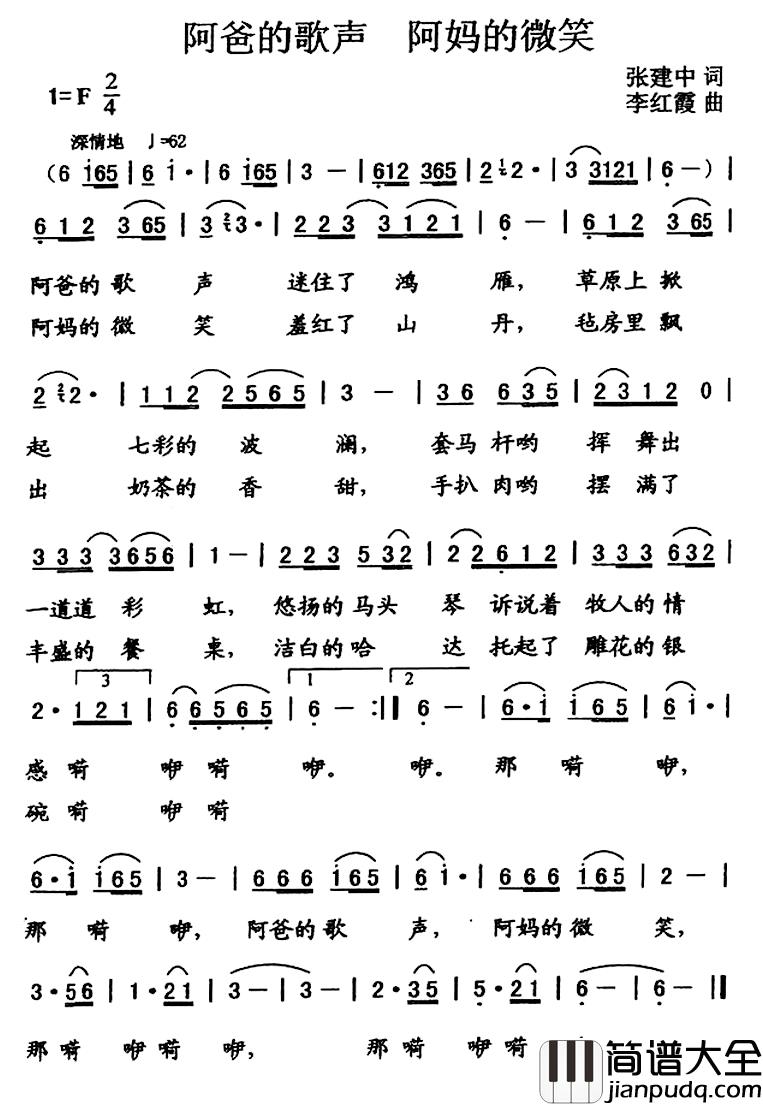 阿爸的歌声 阿妈的微笑
1=F 2/4
张建中 词
李红霞 曲
深情地 ♩=62
(6 i65 | 6 i· | 6 i65 | 3 — | 612 365 | 2 12· | 3 3121 | 6 —) |
6 1 2 3 65 | 3 23· | 2 2 3 3 1 2 1 | 6 — | 6 1 2 3 65 |
阿爸的 歌 声 迷住了 鸿 雁, 草原上 掀
阿妈的 微 笑 羞红了 山 丹, 毡房里 飘
2 22· | 1 1 2 2 5 6 5 | 3 — | 3 6 6 3 5 | 2 3 1 2 0 |
起 七彩的 波 澜, 套马 杆哟 挥 舞出
出 奶茶的 香 甜, 手扒 肉哟 摆 满了
3 3 3 3 6 5 6 | 1 — | 2 2 3 5 3 2 | 2 2 6 1 2 | 3 3 3 6 3 2 |
一道道 彩 虹, 悠扬的 马头 琴 诉说着 牧人的 情
丰盛的 餐 桌, 洁白的 哈 达 托起了 雕花的 银
3
1
2
2· 1 2 1 | 6 6 5 6 5 | 6 — :‖ 6 — | 6·i i 6 5 | 6 i· |
感 嗬 咿嗬 咿。 咿。 那 嗬 咿,
碗 嗬 咿嗬
6·i i 6 5 | 3 — | 6 6 6 i 6 5 | 6 i· | 6 6 6 i 6 5 | 2 — |
那 嗬 咿, 阿爸的 歌 声, 阿妈的 微 笑,
3· 5 6 | 1· 2 1 | 3 — | 3 — | 2· 3 5 | 5· 2 1 | 6 — | 6 — ‖
那嗬 咿嗬 咿, 那嗬 咿嗬
简谱大全
jianpudq.com